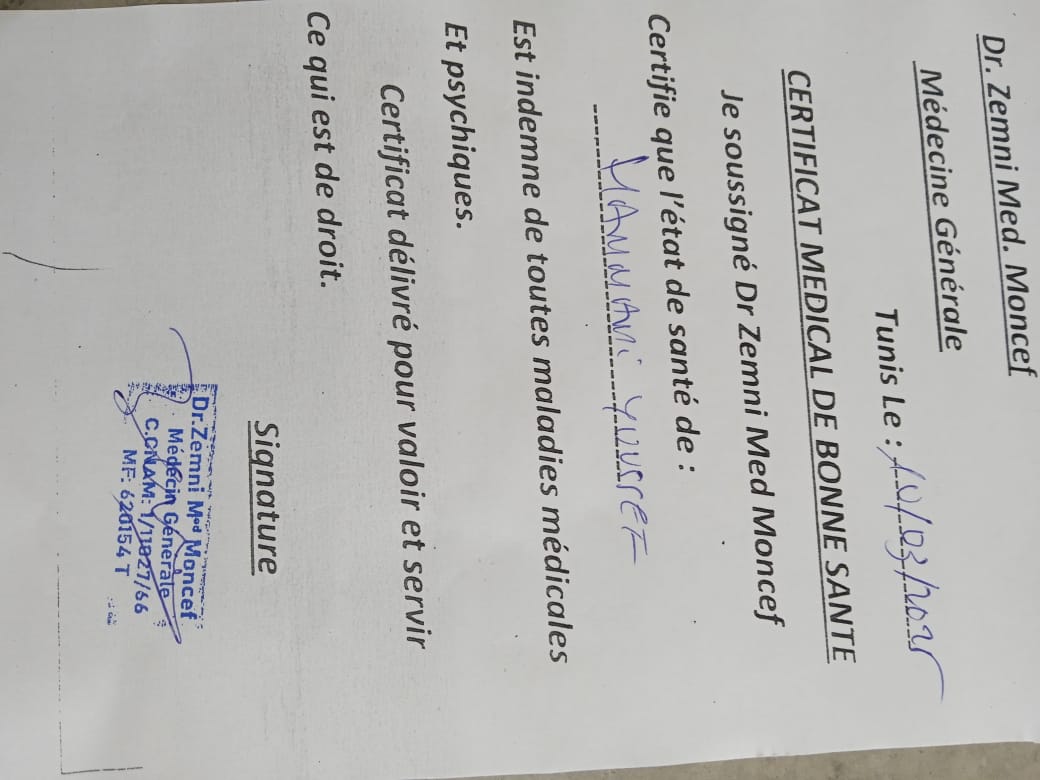 Dr. Zemni Med. Moncef
Médecine Générale
Tunis Le : 10/03/2025
CERTIFICAT MEDICAL DE BONNE SANTE
Je soussigné Dr Zemni Med Moncef
Certifie que l'état de santé de :
HAMMAMI
Est indemne de toutes maladies médicales
Et psychiques.
Certificat délivré pour valoir et servir
Ce qui est de droit.
Signature
Dr.Zemni Med Moncef
Médecin Génerale
C.CNAM: 1/11027/66
MF: 620154 T